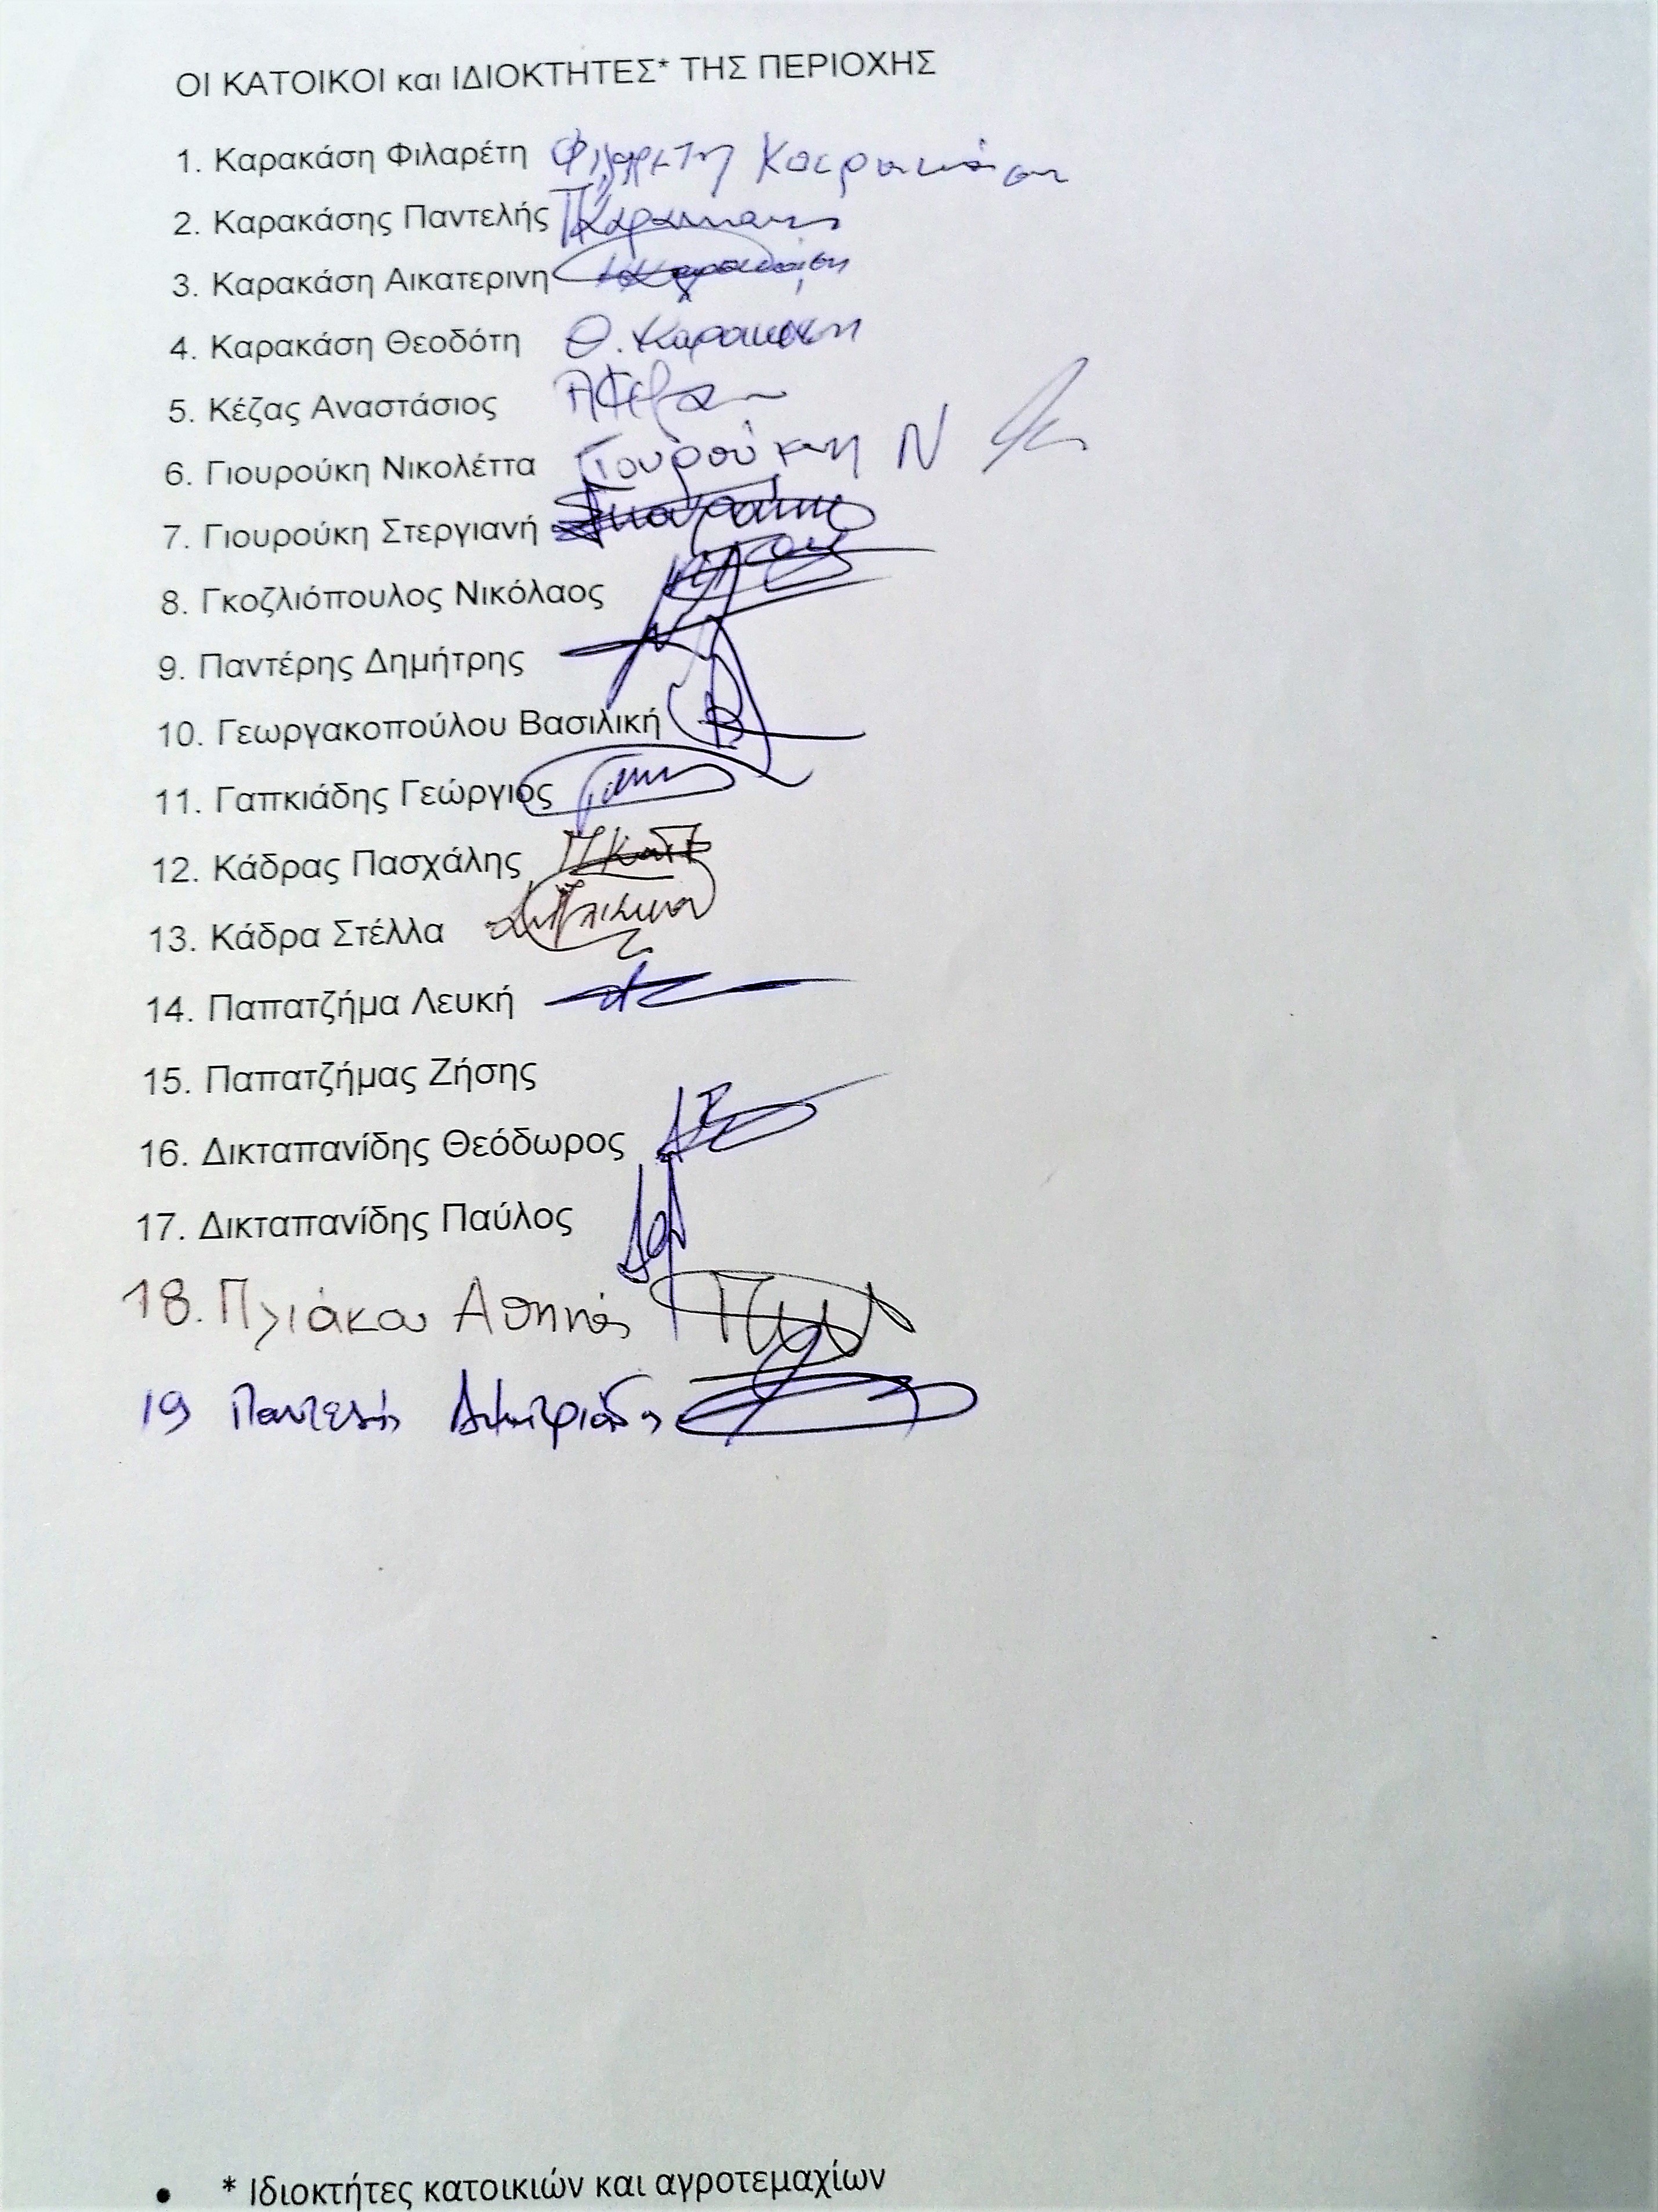 ΟΙ ΚΑΤΟΙΚΟΙ και ΙΔΙΟΚΤΗΤΕΣ* ΤΗΣ ΠΕΡΙΟΧΗΣ
1. Καρακάση Φιλαρέτη Φιλαρετη Καρακάση
2. Καρακάσης Παντελής
3. Καρακάση Αικατερινη
4. Καρακάση Θεοδότη Θ. Καρακάση
5. Κέζας Αναστάσιος
6. Γιουρούκη Νικολέττα Γιουρούκη Ν
7. Γιουρούκη Στεργιανή
8. Γκοζλιόπουλος Νικόλαος
9. Παντέρης Δημήτρης
10. Γεωργακοπούλου Βασιλική
11. Γαπκιάδης Γεώργιος
12. Κάδρας Πασχάλης
13. Κάδρα Στέλλα
14. Παπατζήμα Λευκή
15. Παπατζήμας Ζήσης
16. Δικταπανίδης Θεόδωρος
17. Δικταπανίδης Παύλος
18. Πλιάκου Αθηνά
19 Παντελής Δημητριάδης
• * Ιδιοκτήτες κατοικιών και αγροτεμαχίων